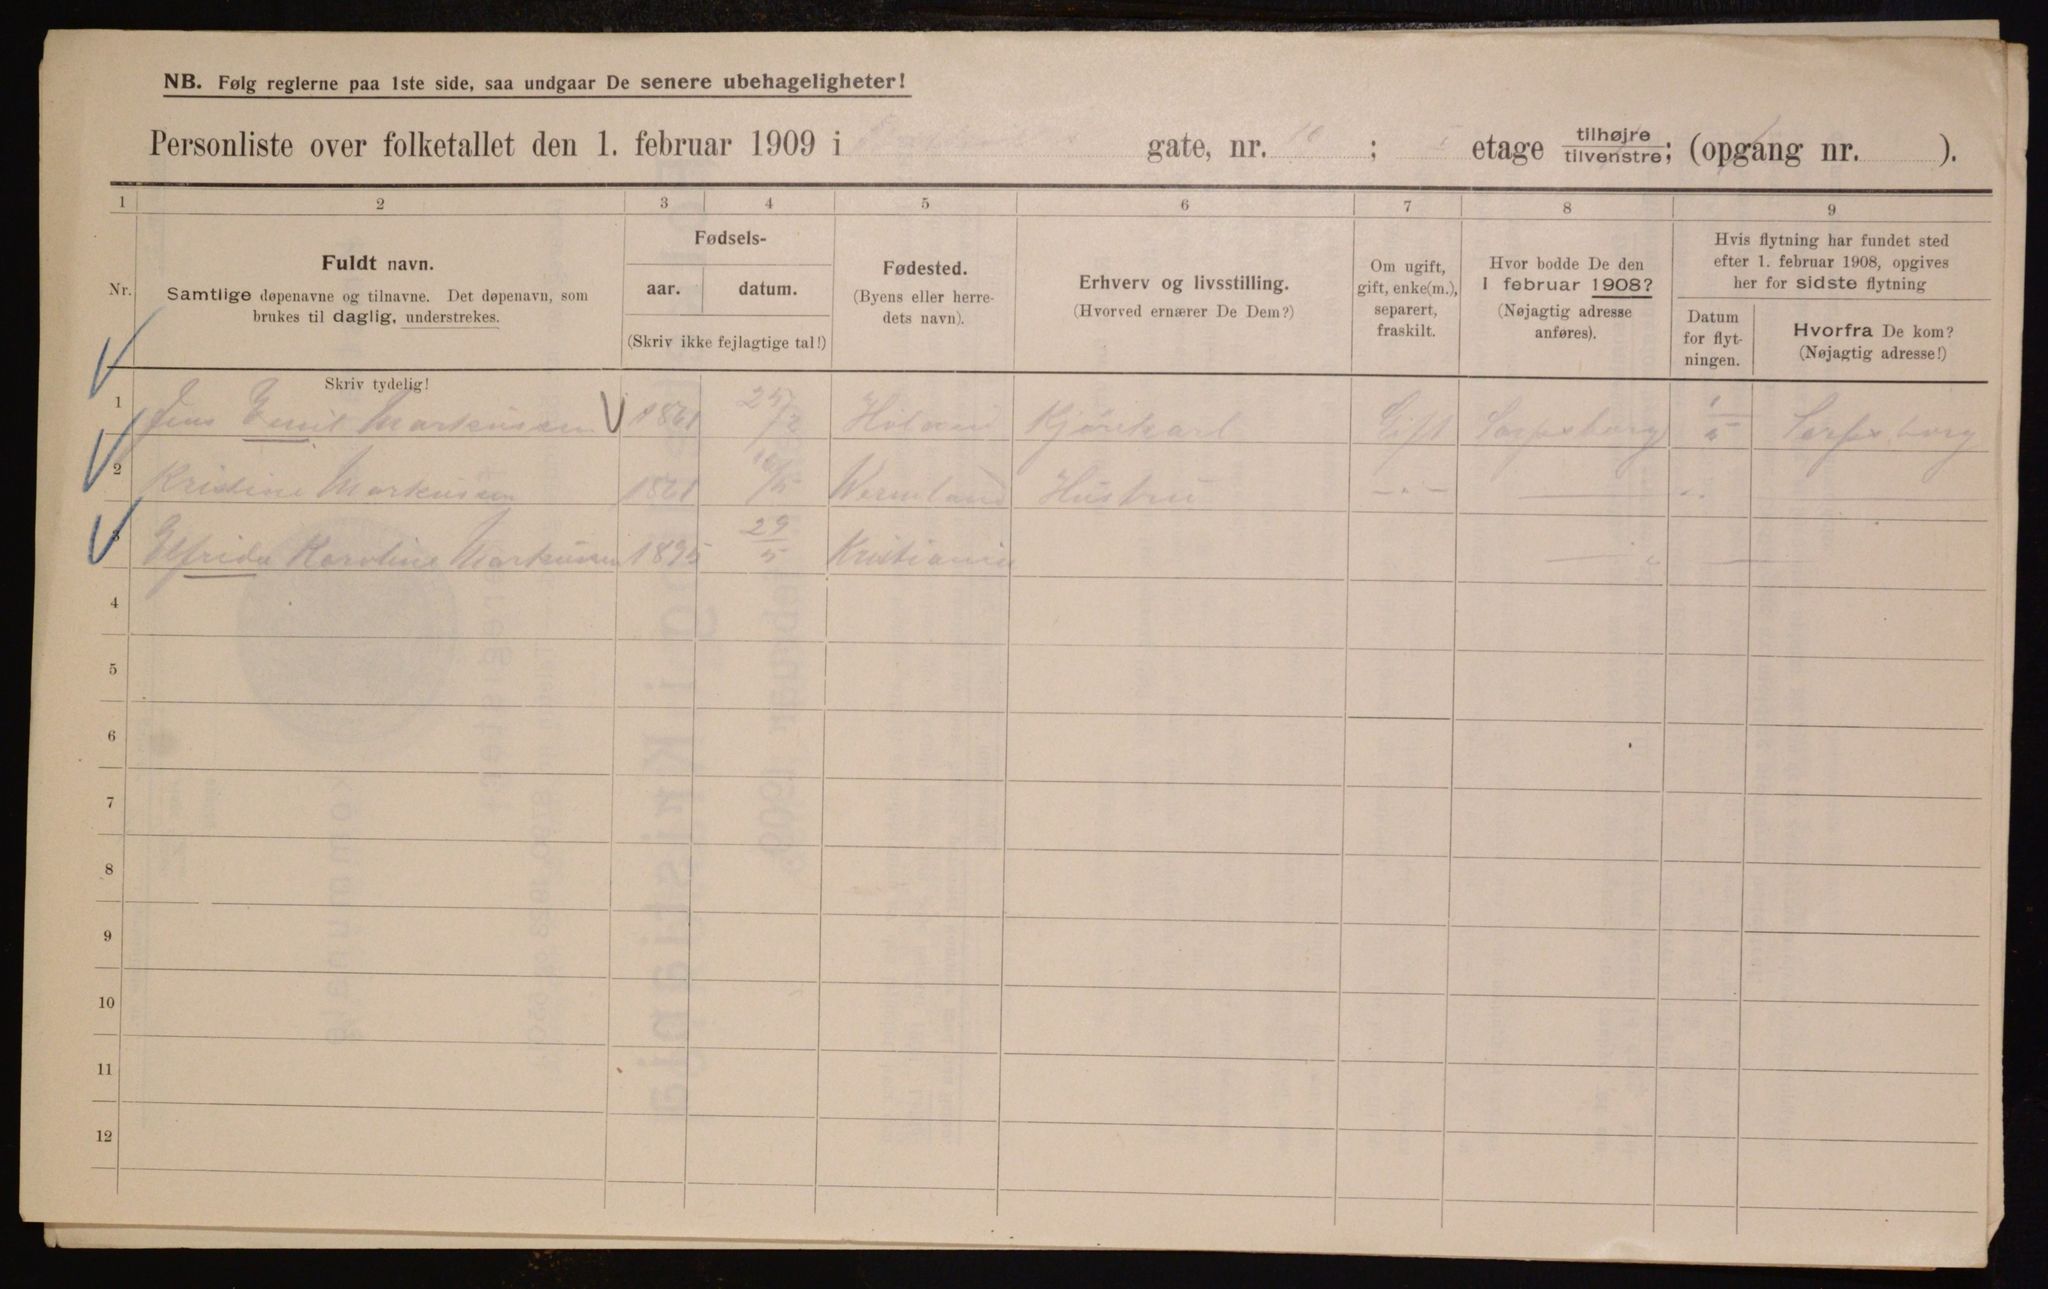 NB. Følg reglerne paa 1ste side, saa undgaar De senere ubehageligheter!
Personliste over folketallet den 1. februar 1909 i gate, nr. 10 ; etage tilhøjre tilvenstre; (opgang nr. ).
1 2 3 4 5 6 7 8 9
Nr.
Fuldt navn.
Samtlige døpenavne og tilnavne. Det døpenavn, som
brukes til daglig, understrekes.
Skriv tydelig!
Fødsels-
aar. datum.
(Skriv ikke fejlagtige tal!)
Fødested.
(Byens eller herre-
dets navn).
Erhverv og livsstilling.
(Hvorved ernærer De Dem?)
Om ugift,
gift, enke(m.),
separert,
fraskilt.
Hvor bodde De den
1 februar 1908?
(Nøjagtig adresse
anføres).
Hvis flytning har fundet sted
efter 1. februar 1908, opgives
her for sidste flytning
Datum
for flyt-
ningen.
Hvorfra De kom?
(Nøjagtig adresse!)
1 Jens Emil Markussen 1861 25/12 Høland Kjørekarl Gift Sarpsborg 1/5 Sarpsborg
2 Kristine Markussen 1861 Wermland Hustru — " — — " —
3 Elfrida Karoline Markussen 1895 29/5 Kristiania — " —
4
5
6
7
8
9
10
11
12